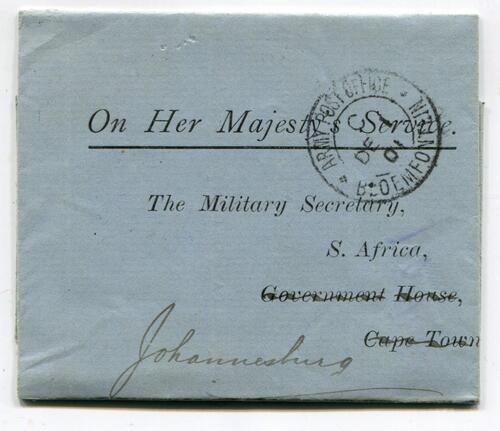 On Her Majesty's Service.
ARMY POST OFFICE BLOEMFONTEIN
C
DE 1
01
The Military Secretary,
S. Africa,
Government House,
Cape Town
Johannesburg